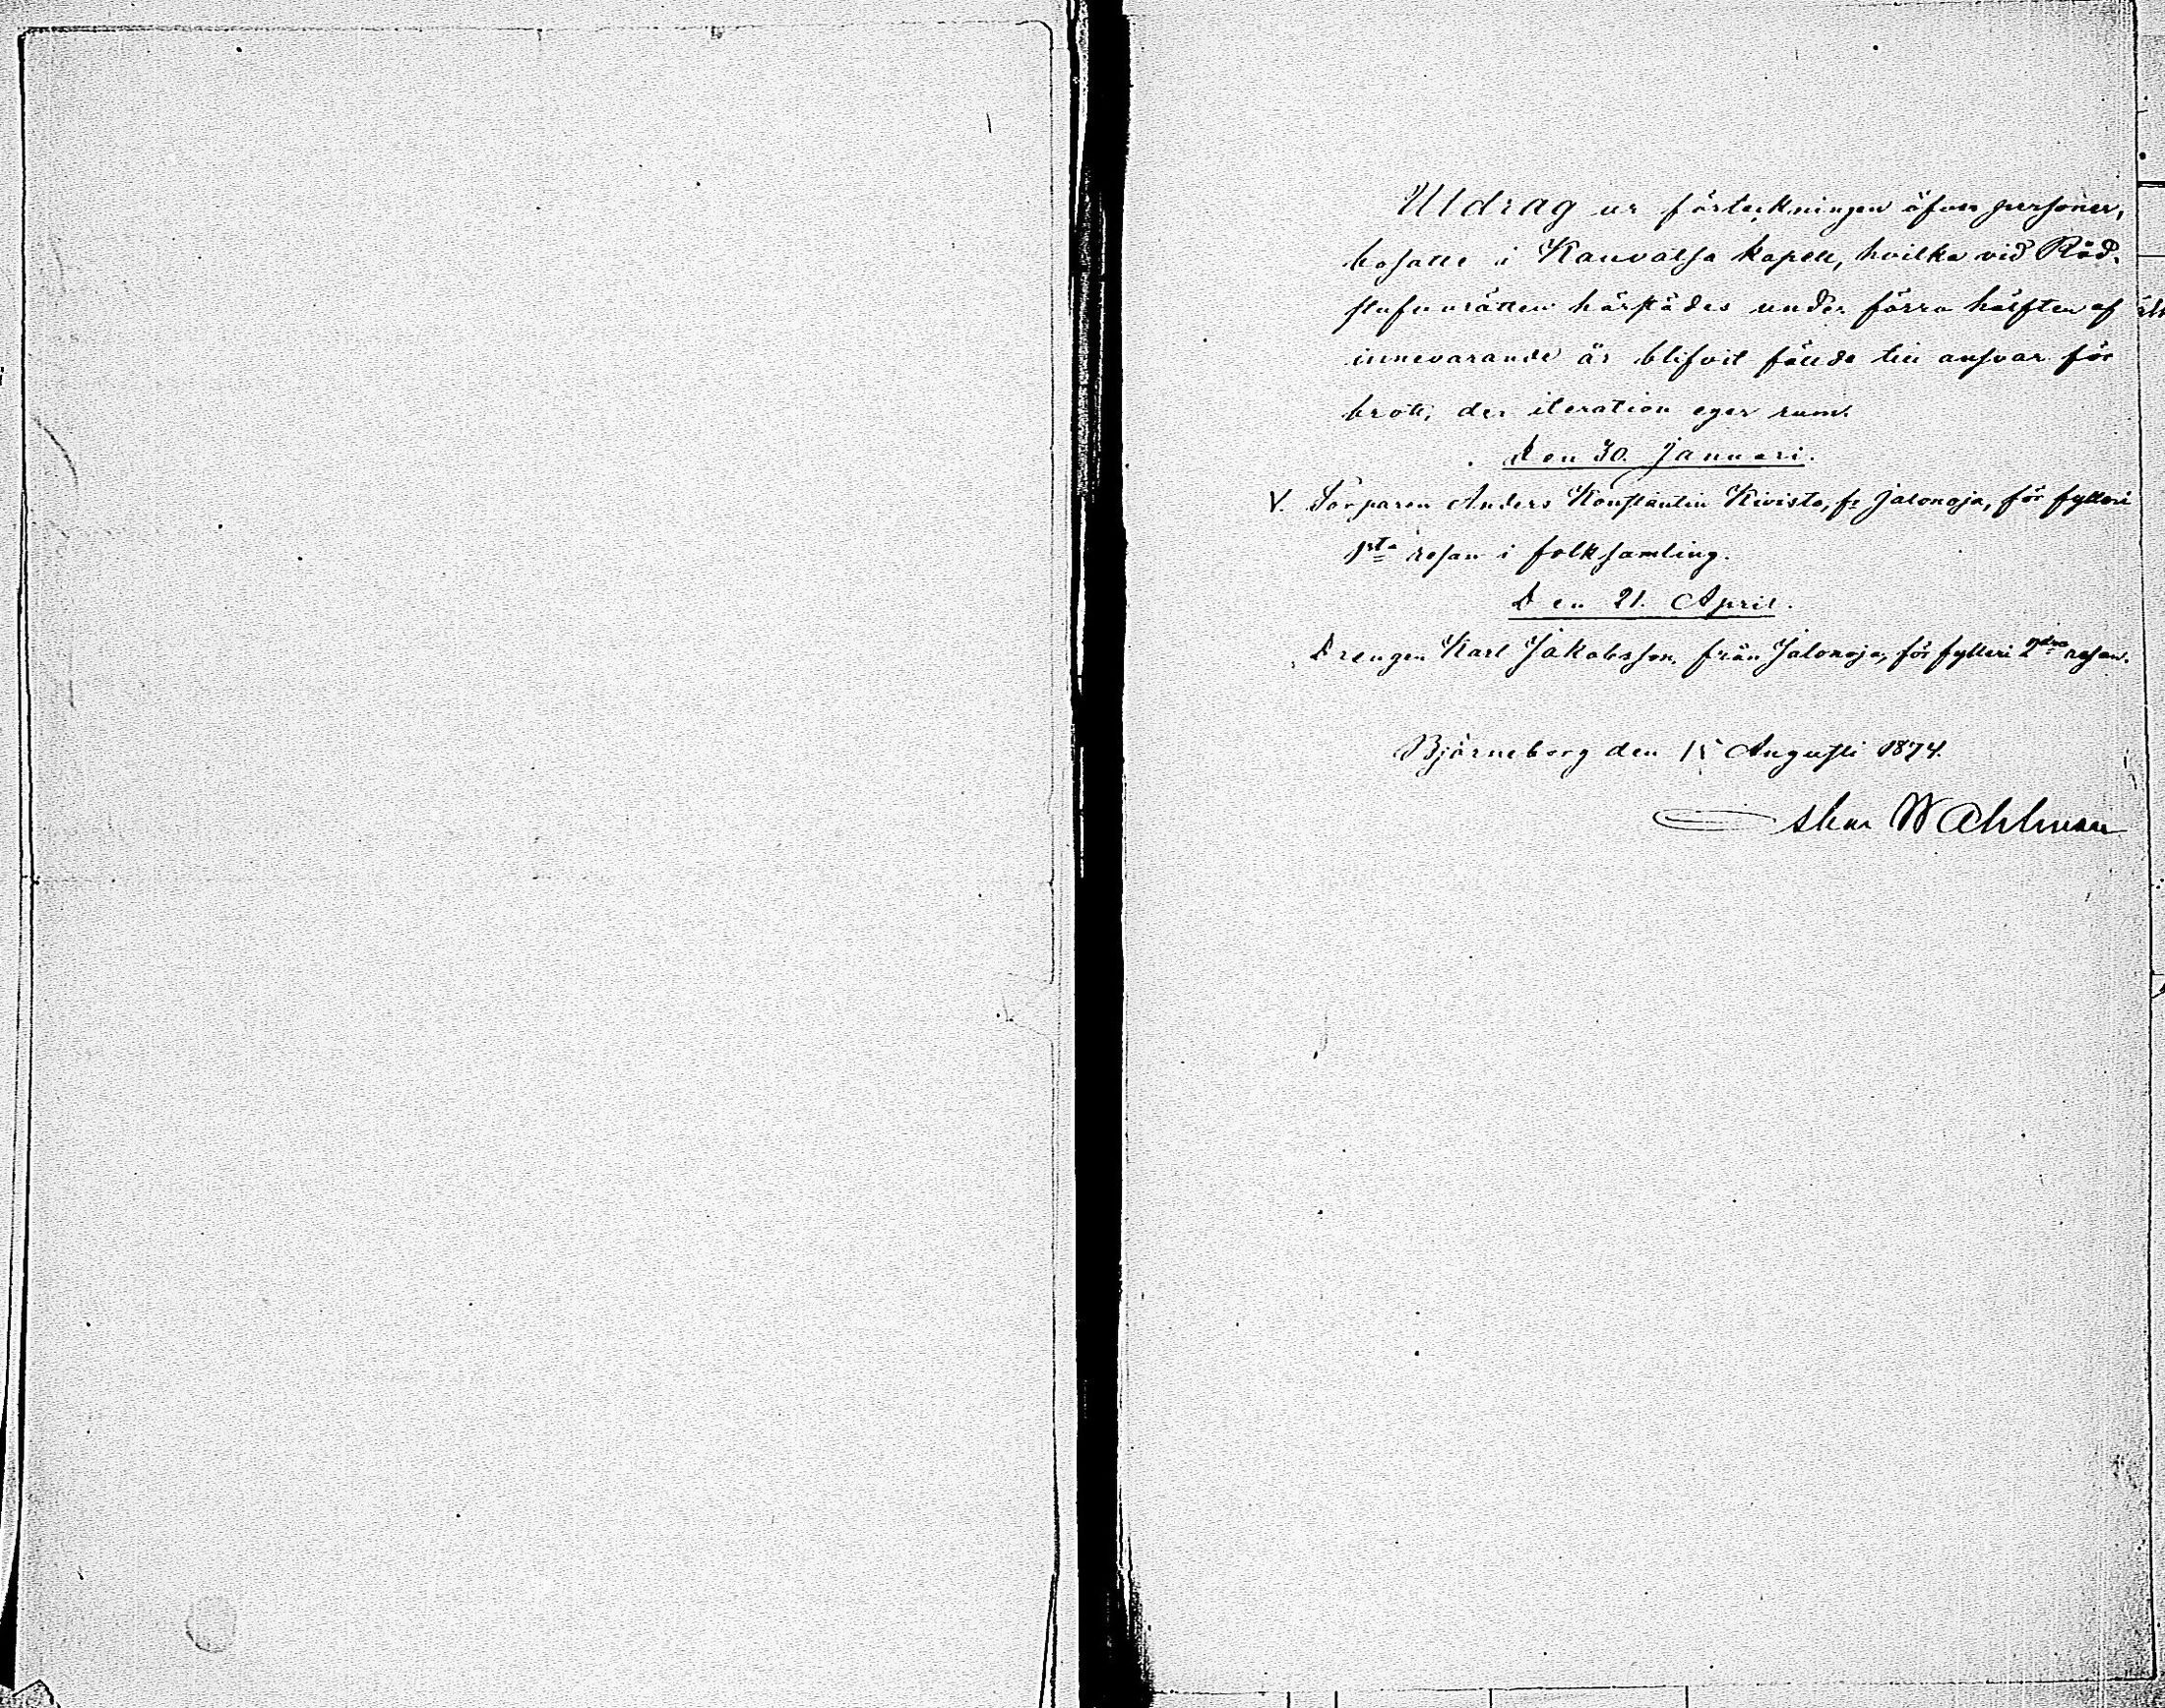 Utdrag ur förteckningen öfver personer,
bosatte i Kauvatsa kapell, hvilka vid Råd-
stufvurätten härstädes under förra hälften af
innevarande år blifvit fällde till ansvar för
brott, der iteration eger rum.
Den 30. Januari.
V. Torparen Anders Konstantin Kivistö, fr. Jalonoja, för fylleri
1sta resan i folksamling.
Den 21. April.
Drengen Karl Jakobsson, från Jalonoja, för fylleri 2dra resan.
Björneborg den 15 Augusti 1874.
Wahlman